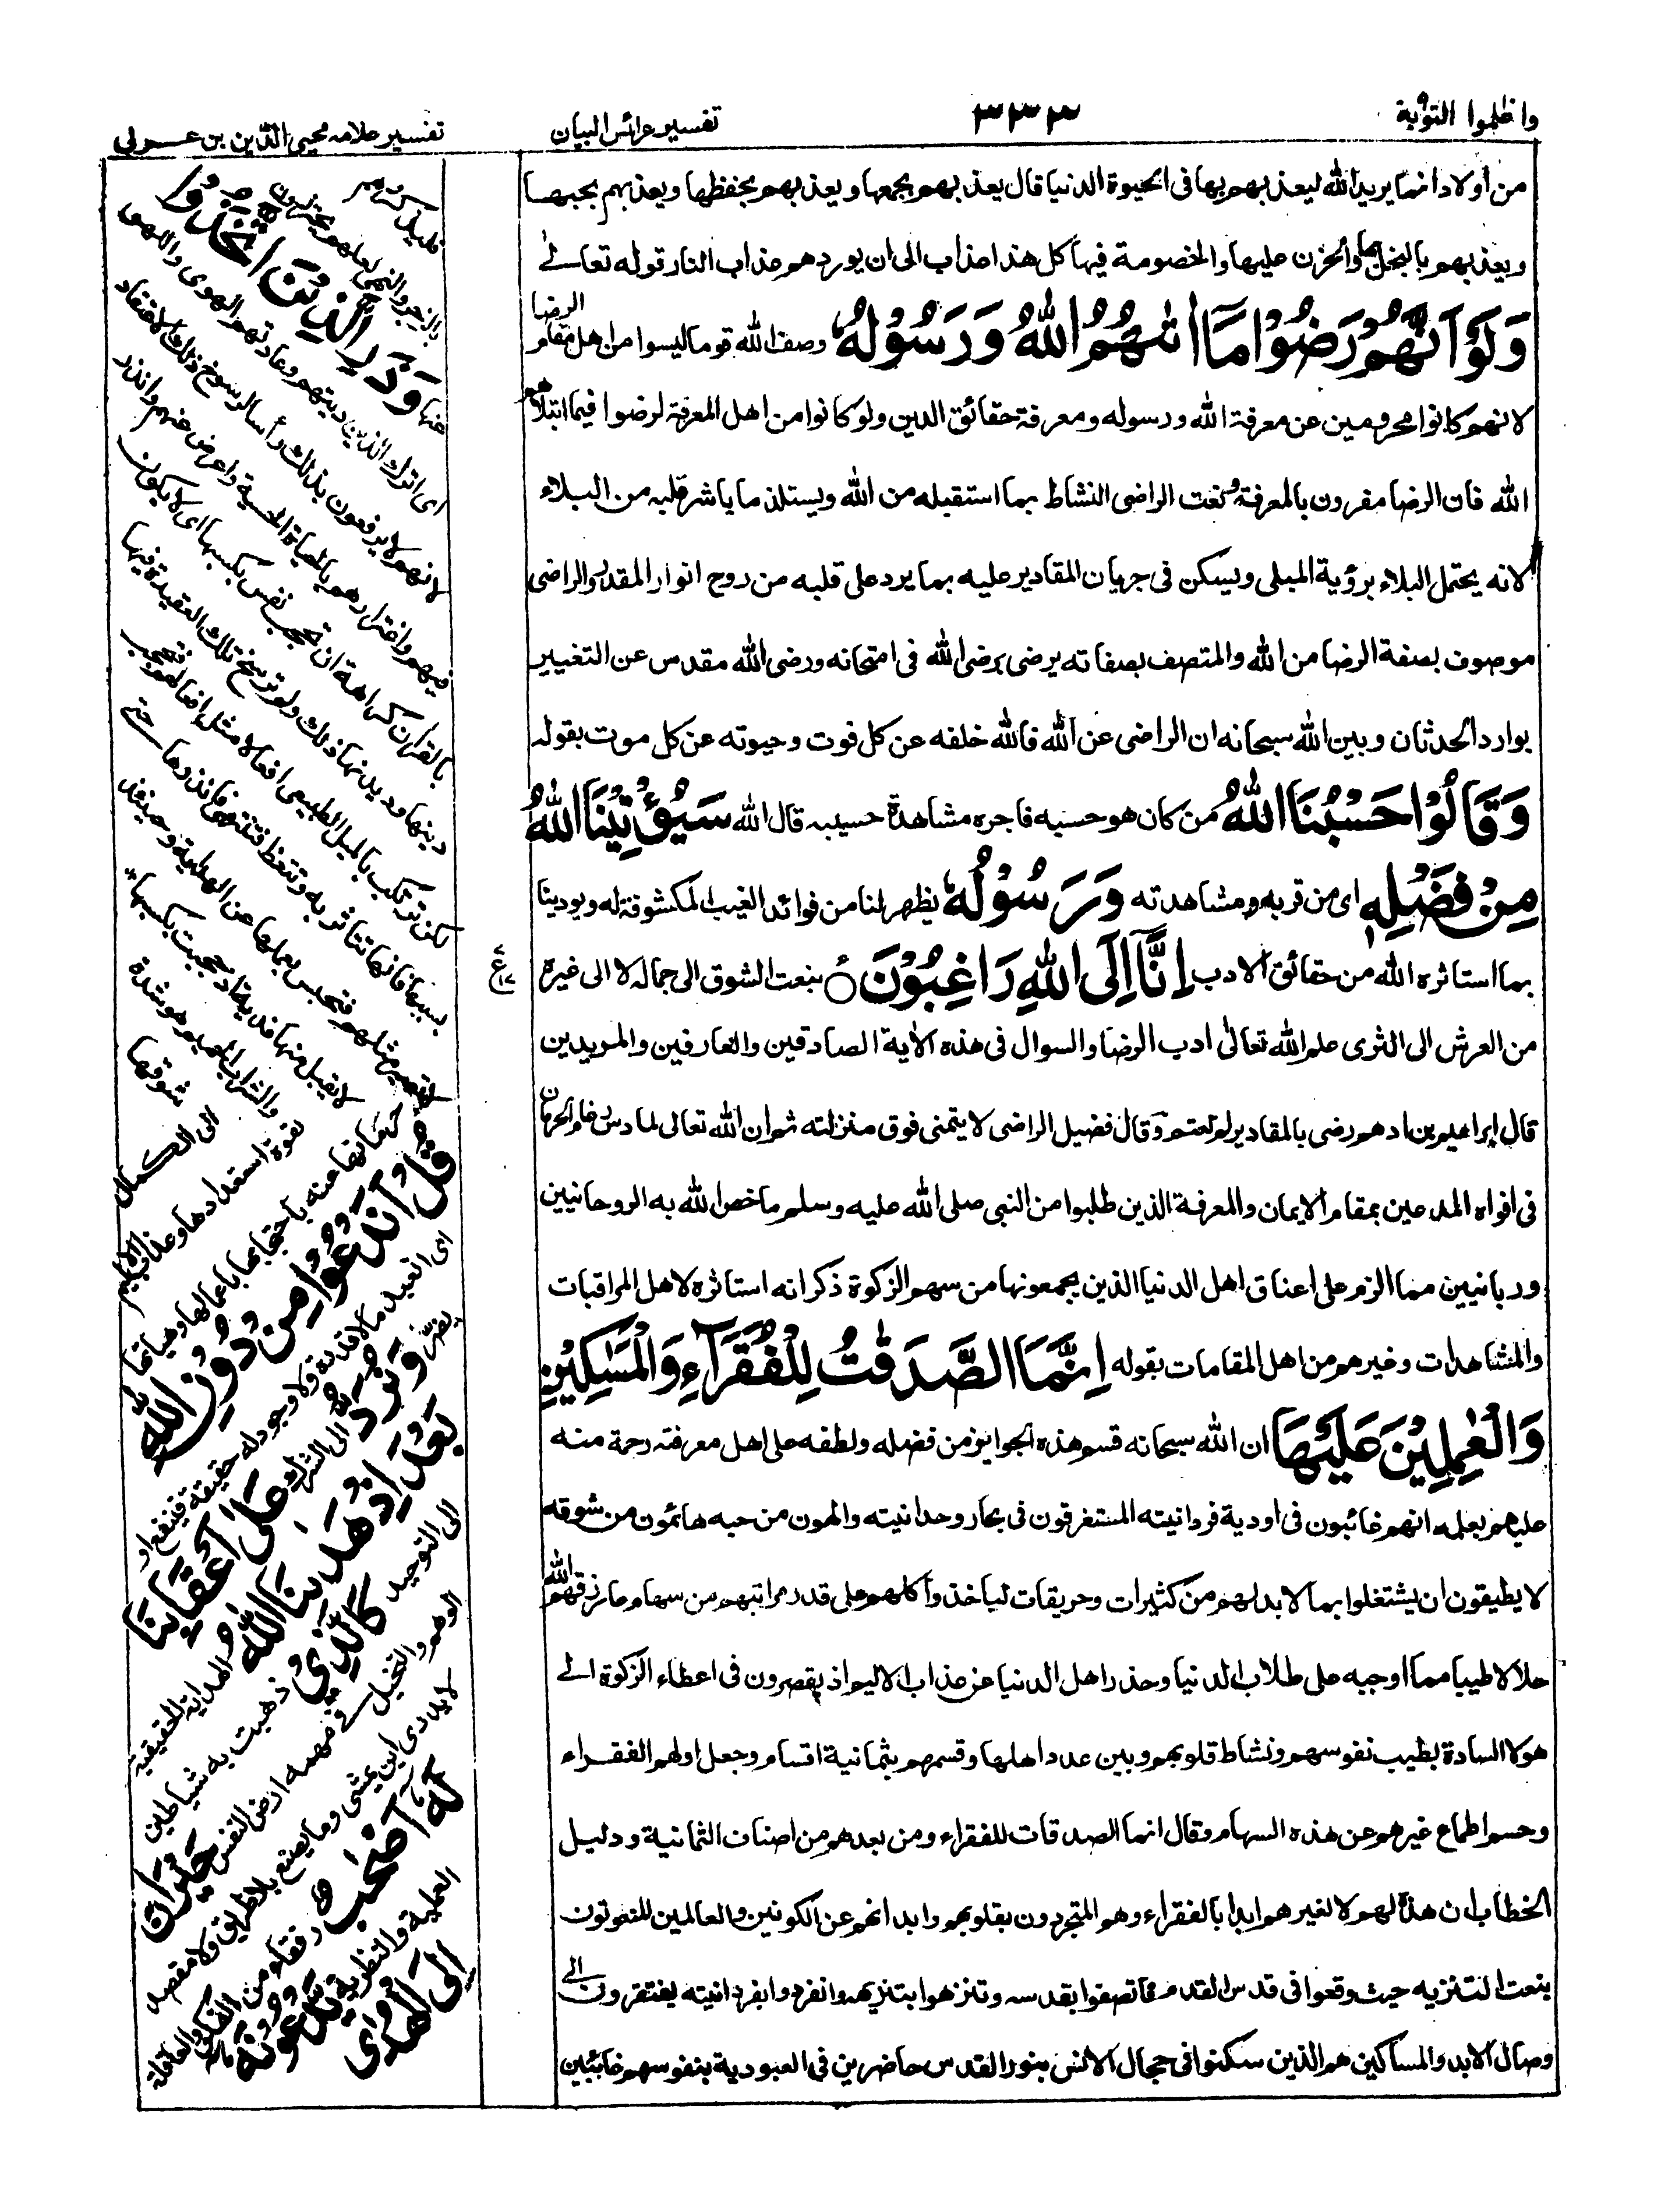 واعلموا التوبة
٣٣٣
تفسير عرائس البيان
تفسير علامه محيى الدين بن عربى
من اولادا نما يريد الله ليعذ بهم بها فى الحيوة الدنيا قال يعذ بهم بجمعها ويعذ بهم بحفظها ويعذ بهم بحبها
ويعذ بهم بالبخل بها والحزن عليها والخصومة فيها كل هذا عذاب الى ان يوردهم عذاب النار قوله تعالى
وَلَوْ اَنَّهُمْ رَضُوْا مَآ اٰتٰىهُمُ اللّٰهُ وَرَسُوْلُهٗ وصف الله قوما ليسوا من اهل مقام الرضا
لانهم كانوا محرومين عن معرفة الله ورسوله ومعرفة حقائق الدين ولو كانوا من اهل المعرفة لرضوا فيما ابتلاهم
الله فان الرضا مقرون بالمعرفة ونعت الراضى النشاط بما استقبله من الله ويستلذ ما يباشر قلبه من البلاء
لانه يحتمل البلاء برؤية المبلى ويسكن فى جريان المقادير عليه بما يرد على قلبه من روح انوار المقدر والراضى
موصوف بصفة الرضا من الله والمتصف بصفاته يرضى برضى الله فى امتحانه ورضى الله مقدس عن التغيير
بوارد الحدثان وبين الله سبحانه ان الراضى عن الله فالله خلفه عن كل فوت وحيوته عن كل موت بقوله
وَقَالُوْا حَسْبُنَا اللّٰهُ من كان هو حسبه فاجره مشاهدة حسيبه قال الله سَيُؤْتِيْنَا اللّٰهُ
مِنْ فَضْلِهٖ اى من قربه ومشاهدته وَرَسُوْلُهٗ يظهر لنا من فوائد الغيب المكشوفة له ويودبنا
بما استاثره الله من حقائق الادب اِنَّآ اِلَى اللّٰهِ رَاغِبُوْنَ بنعت الشوق الى جماله لا الى غيره
من العرش الى الثرى علم الله تعالى ادب الرضا والسوال فى هذه الاية الصادقين والعارفين والمريدين
قال ابراهيم بن ادهم رضى بالمقادير لم يغتم وقال فضيل الراضى لا يتمنى فوق منزلته ثم ان الله تعالى لما دس رغام الحرمان
فى افواه المدعين بمقام الايمان والمعرفة الذين طلبوا من النبى صلى الله عليه وسلم ما خص الله به الروحانيين
وربانيين مما الزم على اعناق اهل الدنيا الذين يجمعونها من سهم الزكوة ذكر انه استاثره لاهل المراقبات
والمشاهدات وغيرهم من اهل المقامات بقوله اِنَّمَا الصَّدَقٰتُ لِلْفُقَرَآءِ وَالْمَسٰكِيْنِ
وَالْعٰمِلِيْنَ عَلَيْهَا ان الله سبحانه قسم هذه الجوايز من فضله ولطفه على اهل معرفته رحمة منه
عليهم بعلمه انهم غائبون فى اودية فردانيته المستغرقون فى بحار وحدانيته والهون من حبه هائمون من شوقه
لا يطيقون ان يشتغلوا بما لا بد لهم من كثيرات وحريقات لياخذوا كلهم على قدر مراتبهم من سهام ما رزقهم الله
حلالا طيبا مما اوجبه على طلاب الدنيا وحذر اهل الدنيا عن عذاب الاليم اذ يقصرون فى اعطاء الزكوة الى
هولا السادة بطيب نفوسهم ونشاط قلوبهم وبين عدد اهلها وقسمهم بثمانية اقسام وجعل اولهم الفقراء
وحسم اطماع غيرهم عن هذه السهام وقال انما الصدقات للفقراء ومن بعدهم من اصناف الثمانية ودليل
الخطاب ان هذا لهم لا لغيرهم ابدا بالفقراء وهم المتجردون بقلوبهم وابدانهم عن الكونين والعالمين المنعوتون
بنعت التنزيه حيث وقعوا فى قدس القدم فاتصفوا بقدسه وتنزهوا بتنزيهه وانفردوا بفردانيته يفتقرون الى
وصال الابد والمساكين هم الذين سكنوا فى حجال الانس بنور القدس حاضرين فى العبودية بنفوسهم غائبين
وَذَرِ الَّذِيْنَ اتَّخَذُوْا
اى اترك الذين دينهم وعادتهم الهوى واللهو
لانهم لا يرفعون بذلك رأسا لرسوخ ذلك الاعتقاد
فيهم واغترارهم بالحياة الحسية واعرض عنهم وانذر
بالقران كراهة ان تحجب نفس بكسبها اى لا يكون
دينها وديدنها ذلك ولم ترسخ تلك العقيدة فيها
لكن ترتكب بالميل الطبيعى افعالا مثل افعالهم فتحجب
بسببها فانها تتاثر به وتتعظ فتنتهى فانذرها حتى
لا تصير مثلهم فتحبس بعملها عن الهداية وحينئذ
لا يقبل منها فدية اذ حجبت بكسبها
والشراب الحميم هو شدة
شوقها
الى الكمال
لقوة استعدادها وعذاب الاليم
حرمانها عنه باحتجابها باعمالها وهياتها
قُلْ اَنَدْعُوْا مِنْ دُوْنِ اللّٰهِ
اى انعبد ما لا قدرة ولا وجود له حقيقة فينفع او
يضر وَنُرَدُّ الى الشرك عَلٰٓى اَعْقَابِنَا
بَعْدَ اِذْ هَدٰىنَا اللّٰهُ الهداية الحقيقية
الى التوحيد كَالَّذِىْ ذهبت به شياطين
الوهم والتخيل فى مهمه ارض النفس حَيْرَانَ
لا يدرى اين يمشى وما يصنع بلا طريق ولا مقصد
لَهٗٓ اَصْحٰبٌ رفقاء من الفكر والعاقلة
العملية والنظرية يَدْعُوْنَهٗٓ
اِلَى الْهُدَى